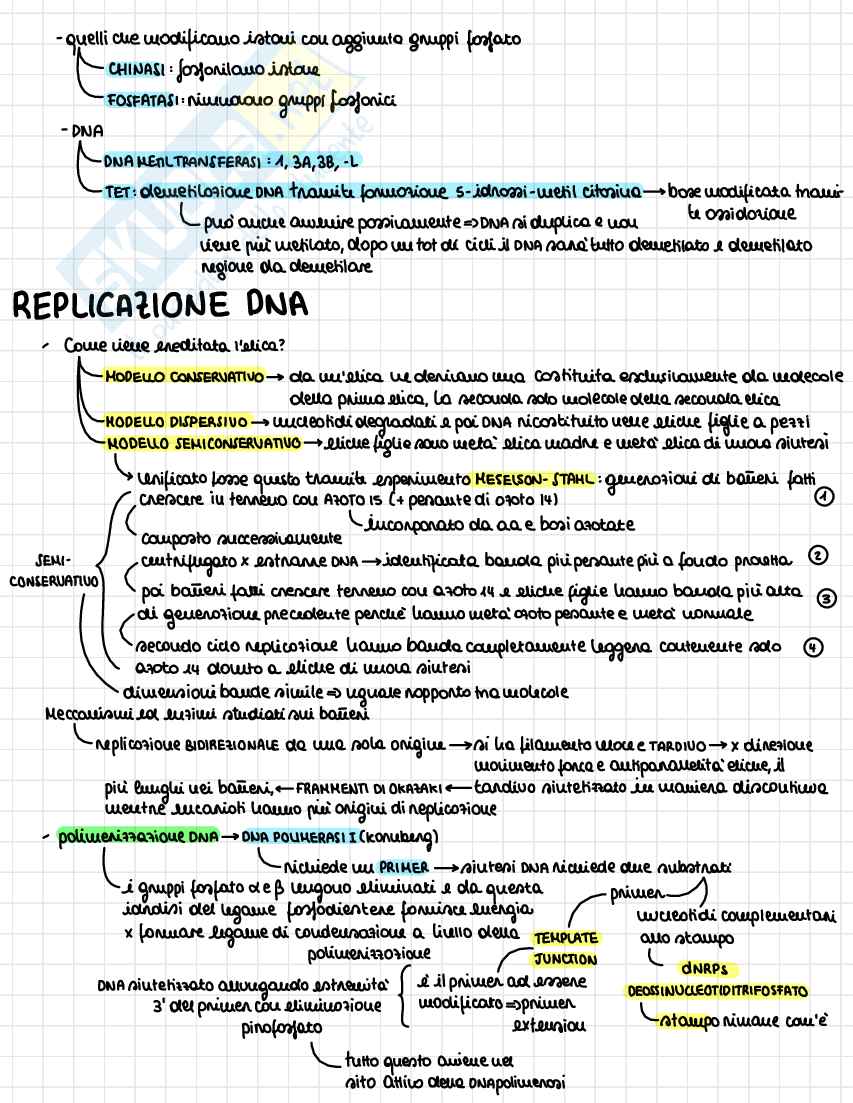 - quelli che modificano istoni con aggiunta gruppi fosfato
CHINASI: fosforilano istone
FOSFATASI: rimuovono gruppi fosforici
- DNA
DNA METILTRANSFERASI: 1, 3A, 3B, -L
TET: demetilazione DNA tramite formazione 5-idrossi-metil citosina → base modificata trami
te ossidazione
può anche avvenire passivamente => DNA si duplica e non
viene più metilato, dopo un tot di cicli il DNA sarà tutto demetilato e demetilato
regione da demetilare
REPLICAZIONE DNA
- Come viene ereditata l'elica?
MODELLO CONSERVATIVO → da un'elica ne derivano una costituita esclusivamente da molecole
della prima elica, la seconda solo molecole della seconda elica
MODELLO DISPERSIVO → nucleotidi degradati e poi DNA ricostituito nelle eliche figlie a pezzi
MODELLO SEMICONSERVATIVO → eliche figlie sono metà elica madre e metà elica di nuova sintesi
verificato fosse questo tramite esperimento MESELSON-STAHL: generazioni di batteri fatti
crescere in terreno con AZOTO 15 (+ pesante di azoto 14) 1
incorporato da aa e basi azotate
composto successivamente
SEMI-
CONSERVATIVO
centrifugato x estrarre DNA → identificata banda più pesante più a fondo provetta 2
poi batteri fatti crescere terreno con azoto 14 e eliche figlie hanno banda più alta 3
di generazione precedente perché hanno metà azoto pesante e metà normale
secondo ciclo replicazione hanno banda completamente leggera contenente solo 4
azoto 14 dovuto a eliche di nuova sintesi
dimensioni bande simile => uguale rapporto tra molecole
Meccanismi ed enzimi studiati sui batteri
replicazione BIDIREZIONALE da una sola origine → si ha filamento veloce e TARDIVO → x direzione
movimento forca e antiparallelità eliche, il
più lunghi nei batteri, ← FRAMMENTI DI OKAZAKI ← tardivo sintetizzato in maniera discontinua
mentre eucarioti hanno più origini di replicazione
- polimerizzazione DNA → DNA POLIMERASI I (Kornberg)
richiede un PRIMER → sintesi DNA richiede due substrati
i gruppi fosfato α e β vengono eliminati e da questa
idrolisi del legame fosfodiestere fornisce energia
x formare legame di condensazione a livello della
polimerizzazione
primer
nucleotidi complementari
allo stampo
TEMPLATE
JUNCTION
dNRPs
DEOSSINUCLEOTIDITRIFOSFATO
stampo rimane com'è
DNA sintetizzato allungando estremità
3' del primer con eliminazione
pirofosfato
è il primer ad essere
modificato => primer
extension
tutto questo avviene nel
sito attivo della DNA polimerasi
SKUOLA.net